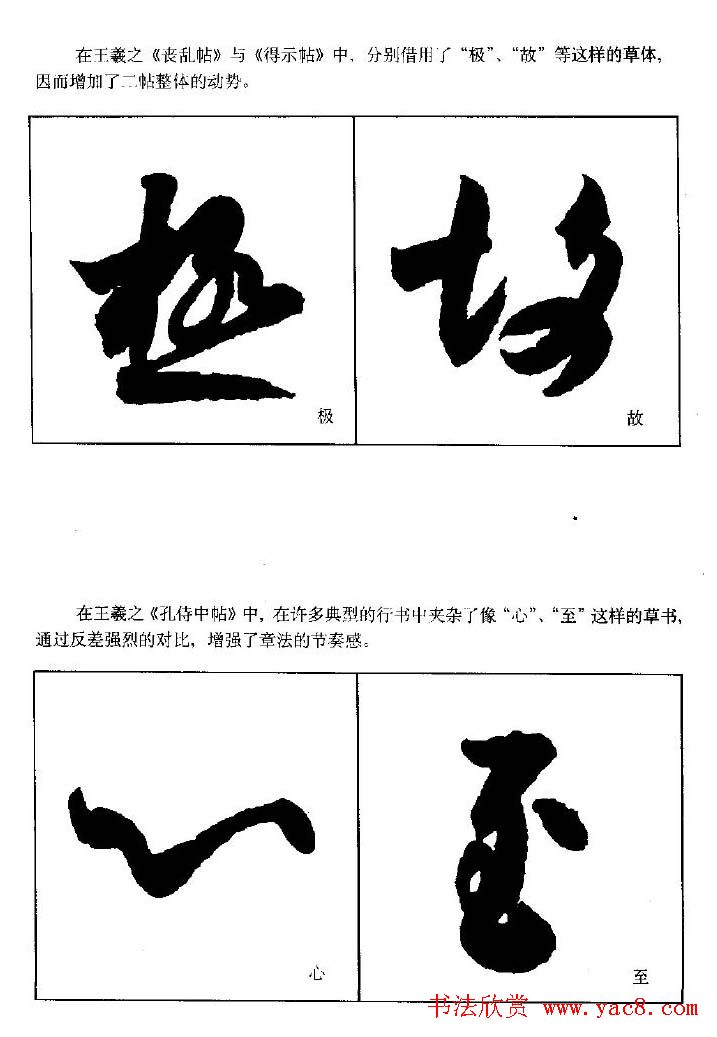 在王羲之《丧乱帖》与《得示帖》中，分别借用了“极”、“故”等这样的草体，
因而增加了二帖整体的动势。
极 故
极
故
在王羲之《孔侍中帖》中，在许多典型的行书中夹杂了像“心”、“至”这样的草书，
通过反差强烈的对比，增强了章法的节奏感。
心 至
心
至
书法欣赏 www.yac8.com